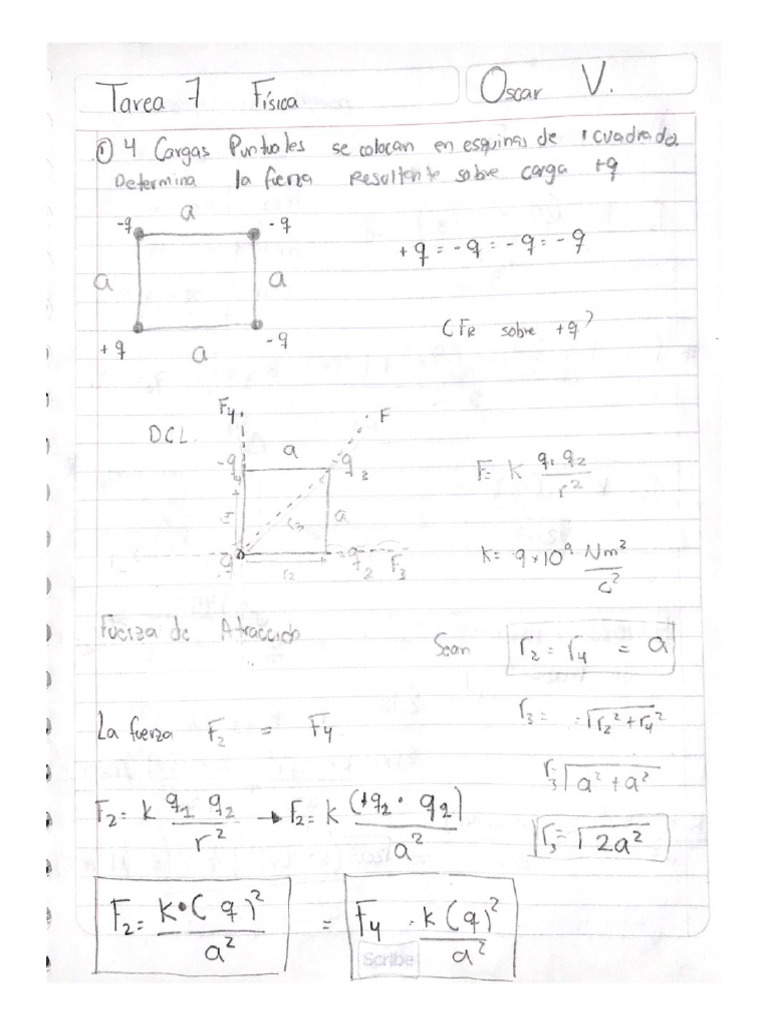 Tarea 7 Física Oscar V.
① 4 Cargas Puntuales se colocan en esquinas de 1 cuadrado.
Determina la fuerza resultante sobre carga +q
a
-q -q
a a
+q a -q
+q = -q = -q = -q
¿FR sobre +q?
DCL.
F4 F
a
-q4 -q3
r3 a
q r2 -q2 F3
F = k q1 q2 / r²
K = 9×10⁹ Nm²/c²
Fuerza de Atracción
Sean r2 = r4 = a
La fuerza F2 = F4
r3 = = √r2² + r4²
r3 √a² + a²
r3 = √2a²
F2 = k q1 q2 / r² → F2 = k (+q2 · q2) / a²
F2 = K•(q)² / a² = F4 = k(q)² / a²
Scribe